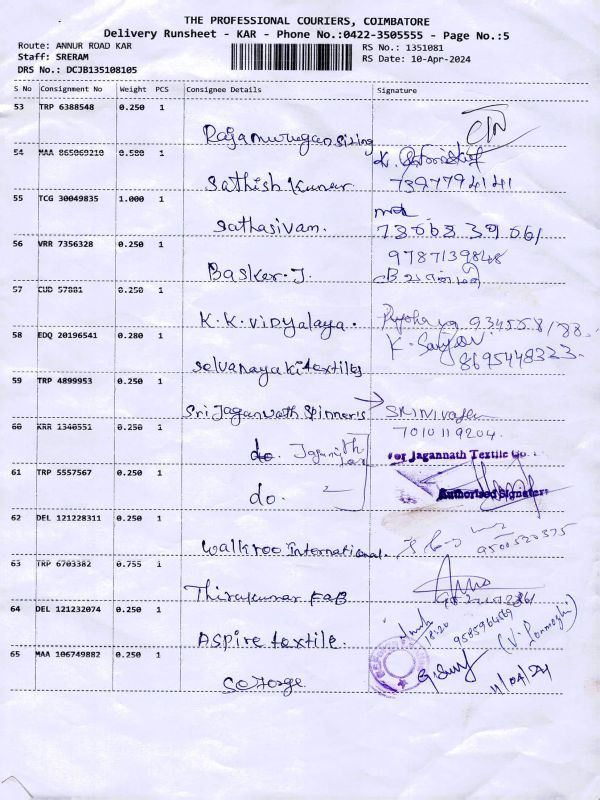 THE PROFESSIONAL COURIERS, COIMBATORE
Delivery Runsheet - KAR - Phone No.:0422-3505555 - Page No.:5
Route: ANNUR ROAD KAR RS No.: 1351081
Staff: SRERAM RS Date: 10-Apr-2024
DRS No.: DCJB135108105
S No Consignment No Weight PCS Consignee Details Signature
53 TRP 6388548 0.250 1
Rajamurugan sizing
54 MAA 865069210 0.500 1
Sathish Kumar 7397794141
55 TCG 30049835 1.000 1
Sathasivam.
56 VRR 7356328 0.250 1 9787139848
Basker.J.
57 CUD 57881 0.250 1
K.K. vidyalaya.
58 EDQ 20196541 0.280 1
Selvanayaki textiles 8695448323.
59 TRP 4899953 0.250 1
Sri Jagannath Spinners
60 KRR 1340551 0.250 1 7010119204.
do. For Jagannath Textile Co.
61 TRP 5557567 0.250 1 Authorised Signatory
do.
62 DEL 121228311 0.250 1
Walkroo International.
63 TRP 6703382 0.755 1
Thirukumar FAB
64 DEL 121232074 0.250 1 18:20
Aspire textile.
65 MAA 106749882 0.250 1
11/04/24